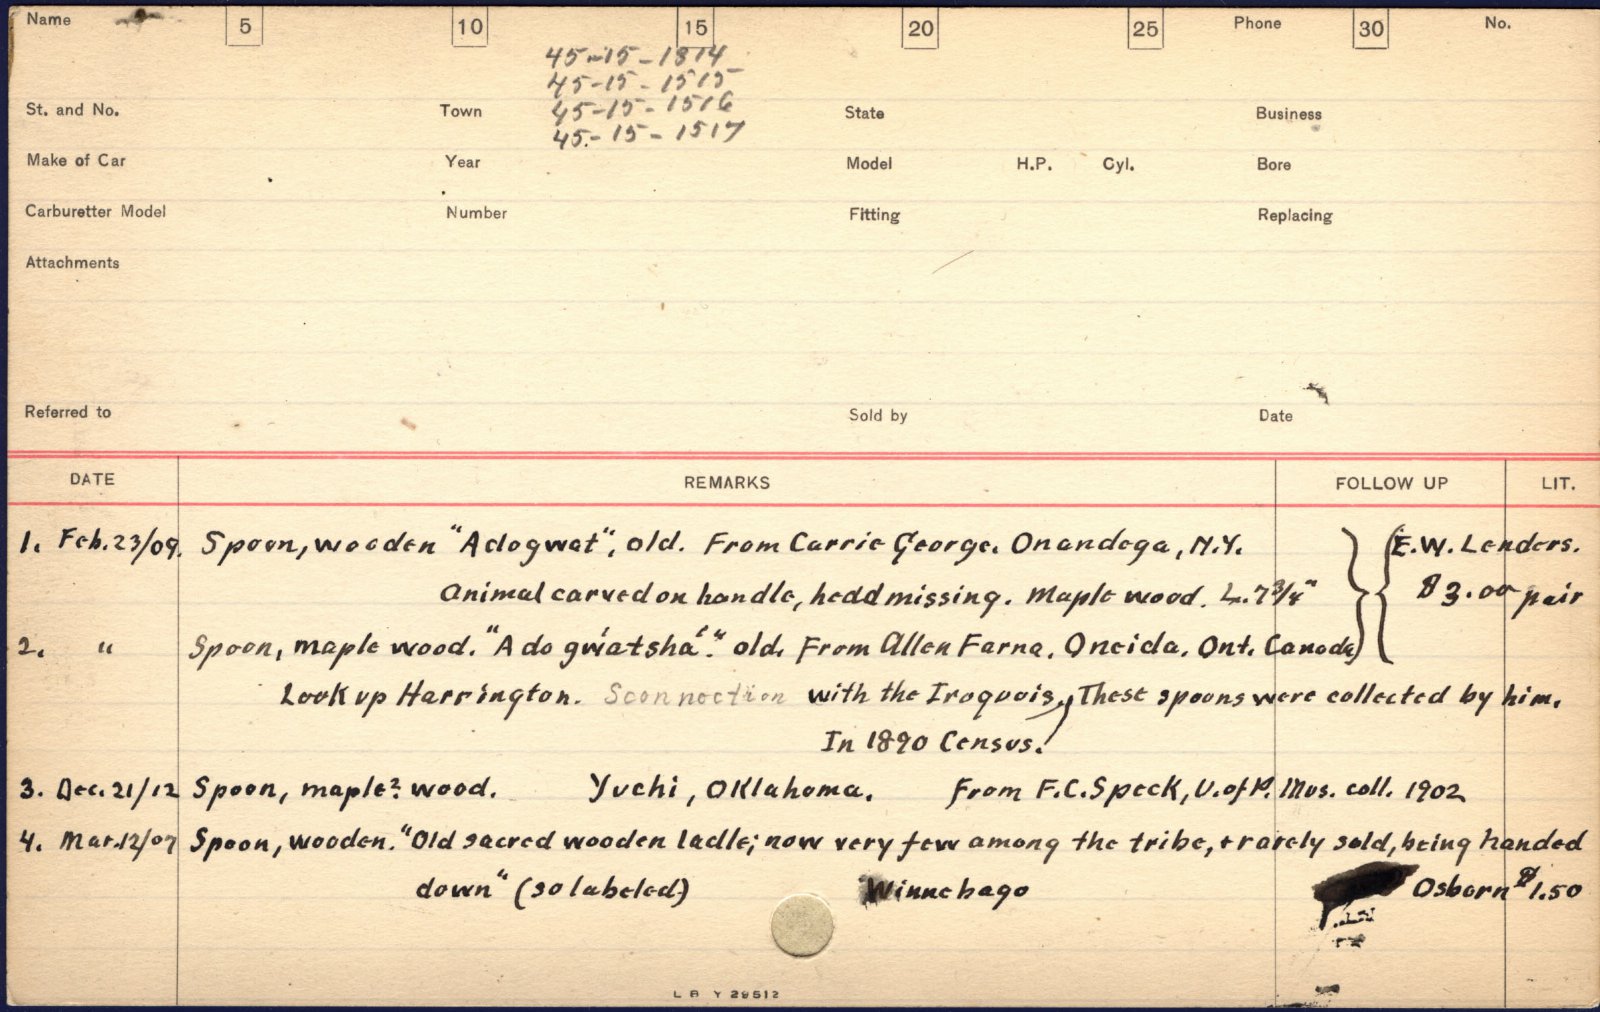 Name 5 10 15 20 25 Phone 30 No.
45-15-1814
45-15-1515
St. and No. Town 45-15-1516 State Business
45-15-1517
Make of Car Year Model H.P. Cyl. Bore
Carburetter Model Number Fitting Replacing
Attachments
Referred to Sold by Date
DATE REMARKS FOLLOW UP LIT.
1. Feb. 23/09. Spoon, wooden "Adogwat", old. From Carrie George. Onandega, N.Y. E.W. Lenders.
Animal carved on handle, hedd missing. Maple wood. L. 7 3/4" $3.00 pair
2. " Spoon, maple wood. "A do gwatsha". old. From Allen Farna. Oneida. Ont. Canada
Look up Harrington. with the Iroquois. These spoons were collected by him.
In 1890 Census.
3. Dec. 21/12 Spoon, maple? wood. Yuchi, Oklahoma. From F.C. Speck, U. of P. Mus. coll. 1902
4. Mar. 12/07 Spoon, wooden. "Old sacred wooden ladle; now very few among the tribe, + rarely sold, being handed
down" (so labeled) Winnebago Osborn $1.50
L B Y 29512